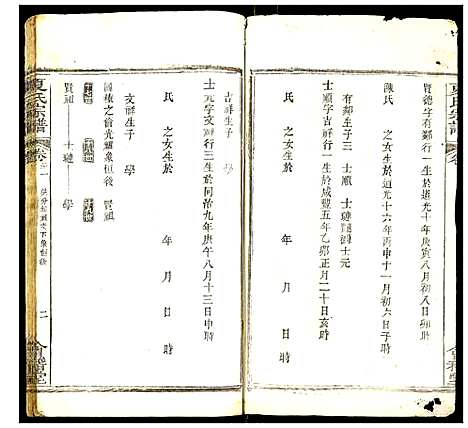 夏氏宗譜
賢德字有鄰行一生於道光十年庚寅八月初八日卯時
陳氏 之女生於道光十六年丙申十一月初六日子時
有鄰生子三 士順 士璉 士元
士順字吉祥行一生於咸豐五年乙卯正月二十日亥時
氏 之女生於 年 月 日 時
吉祥生子 學
士元字文祥行三生於同治九年庚午八月十三日申時
氏 之女生於 年 月 日 時
文祥生子 學
國積之裔光耀象恒後 賢祖
賢祖 士璉 學
夏氏宗譜
二
會